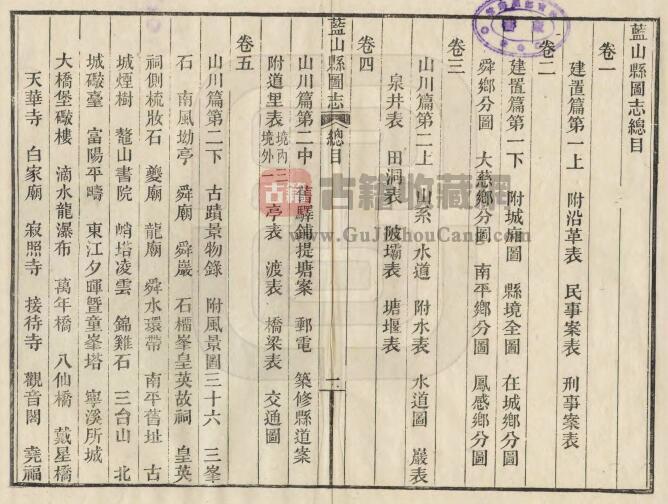 藍山縣圖志總目
卷一
建置篇第一上 附沿革表 民事案表 刑事案表
卷二
建置篇第一下 附城廂圖 縣境全圖 在城鄉分圖
舜鄉分圖 大慈鄉分圖 南平鄉分圖 鳳感鄉分圖
卷三
山川篇第二上 山系 水道 附水表 水道圖 巖表
泉井表 田洞表 陂壩表 塘堰表
卷四
藍山縣圖志 總目 一
山川篇第二中 舊驛鋪提塘案 郵電 築修縣道案
附道里表境內三境外一 亭表 渡表 橋梁表 交通圖
卷五
山川篇第二下 古蹟景物錄 附風景圖三十六 三峯
石 南風坳亭 舜廟 舜巖 石櫺峯皇英故祠 皇英
祠側梳妝石 夔廟 龍廟 舜水環帶 南平舊址 古
城煙樹 鼇山書院 峭塔凌雲 錦雞石 三台山 北
城礮臺 富陽平疇 東江夕暉暨童峯塔 寧溪所城
大橋堡礮樓 滴水龍瀑布 萬年橋 八仙橋 戴星橋
天華寺 白家廟 寂照寺 接待寺 觀音閣 堯福
古籍
古籍收藏网
www.GuJiShouCang.com